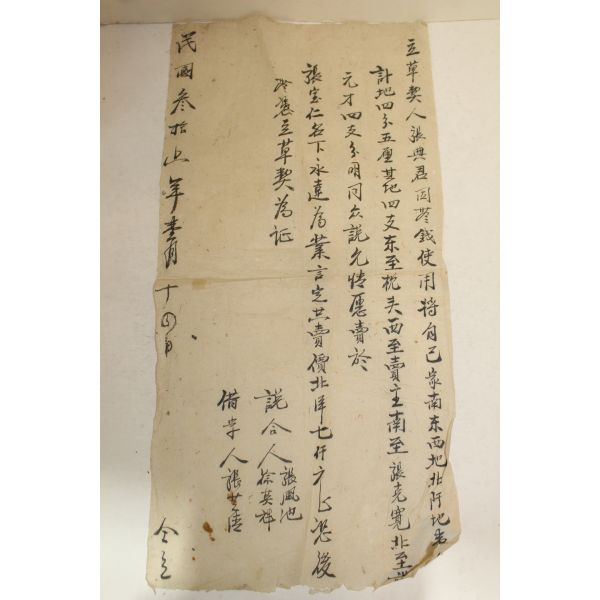 立草契人張興君因營錢使用將自己家南东西地北阡地
計地四分五厘其地四支东至杭夫西至賣主南至張克寬北至
元才四支分明同众說允情愿賣於
張宝仁名下永遠為業言定共賣價北洋七仟元正恐後
冷慿立草契為证
說合人張鳳池
徐英輝
借字人張
民國叁拾年十四日
仝立